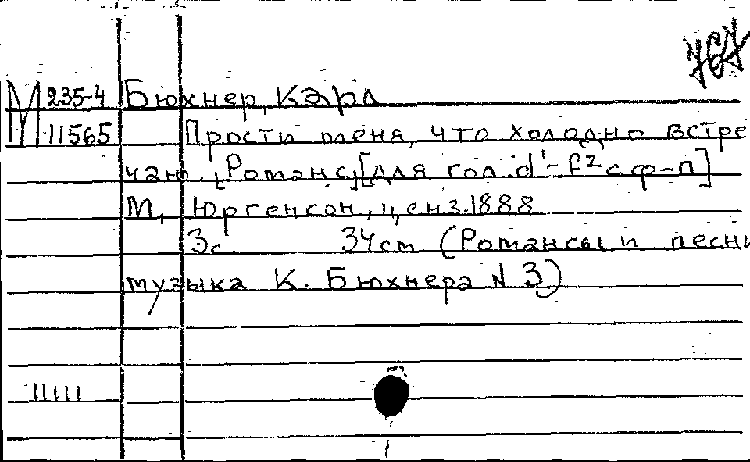 767
М 235-4 Бюхнер, Карл
11565 Прости меня, что холодно встре
чаю. [Романс] [для гол. d'-f² с ф-п]
М, Юргенсон, ценз. 1888
3с 34см (Романсы и песни
музыка К. Бюхнера N 3)
11111